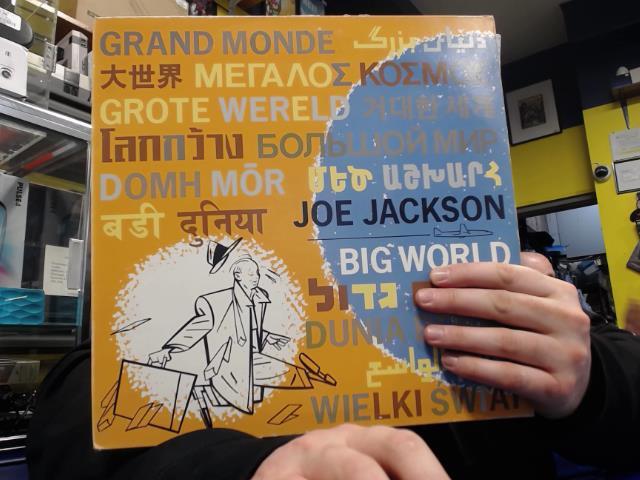 GRAND MONDE دنیای بزرگ
大世界 ΜΕΓΑΛΟΣ ΚΟΣΜΟΣ
GROTE WERELD 거대한 세계
โลกกว้าง БОЛЬШОЙ МИР
DOMH MŌR ՄԵԾ ԱՇԽԱՐՀ
बडी दुनिया JOE JACKSON
BIG WORLD
גדול
DUNIA
الواسع
WIELKI ŚWIAT
PULSE